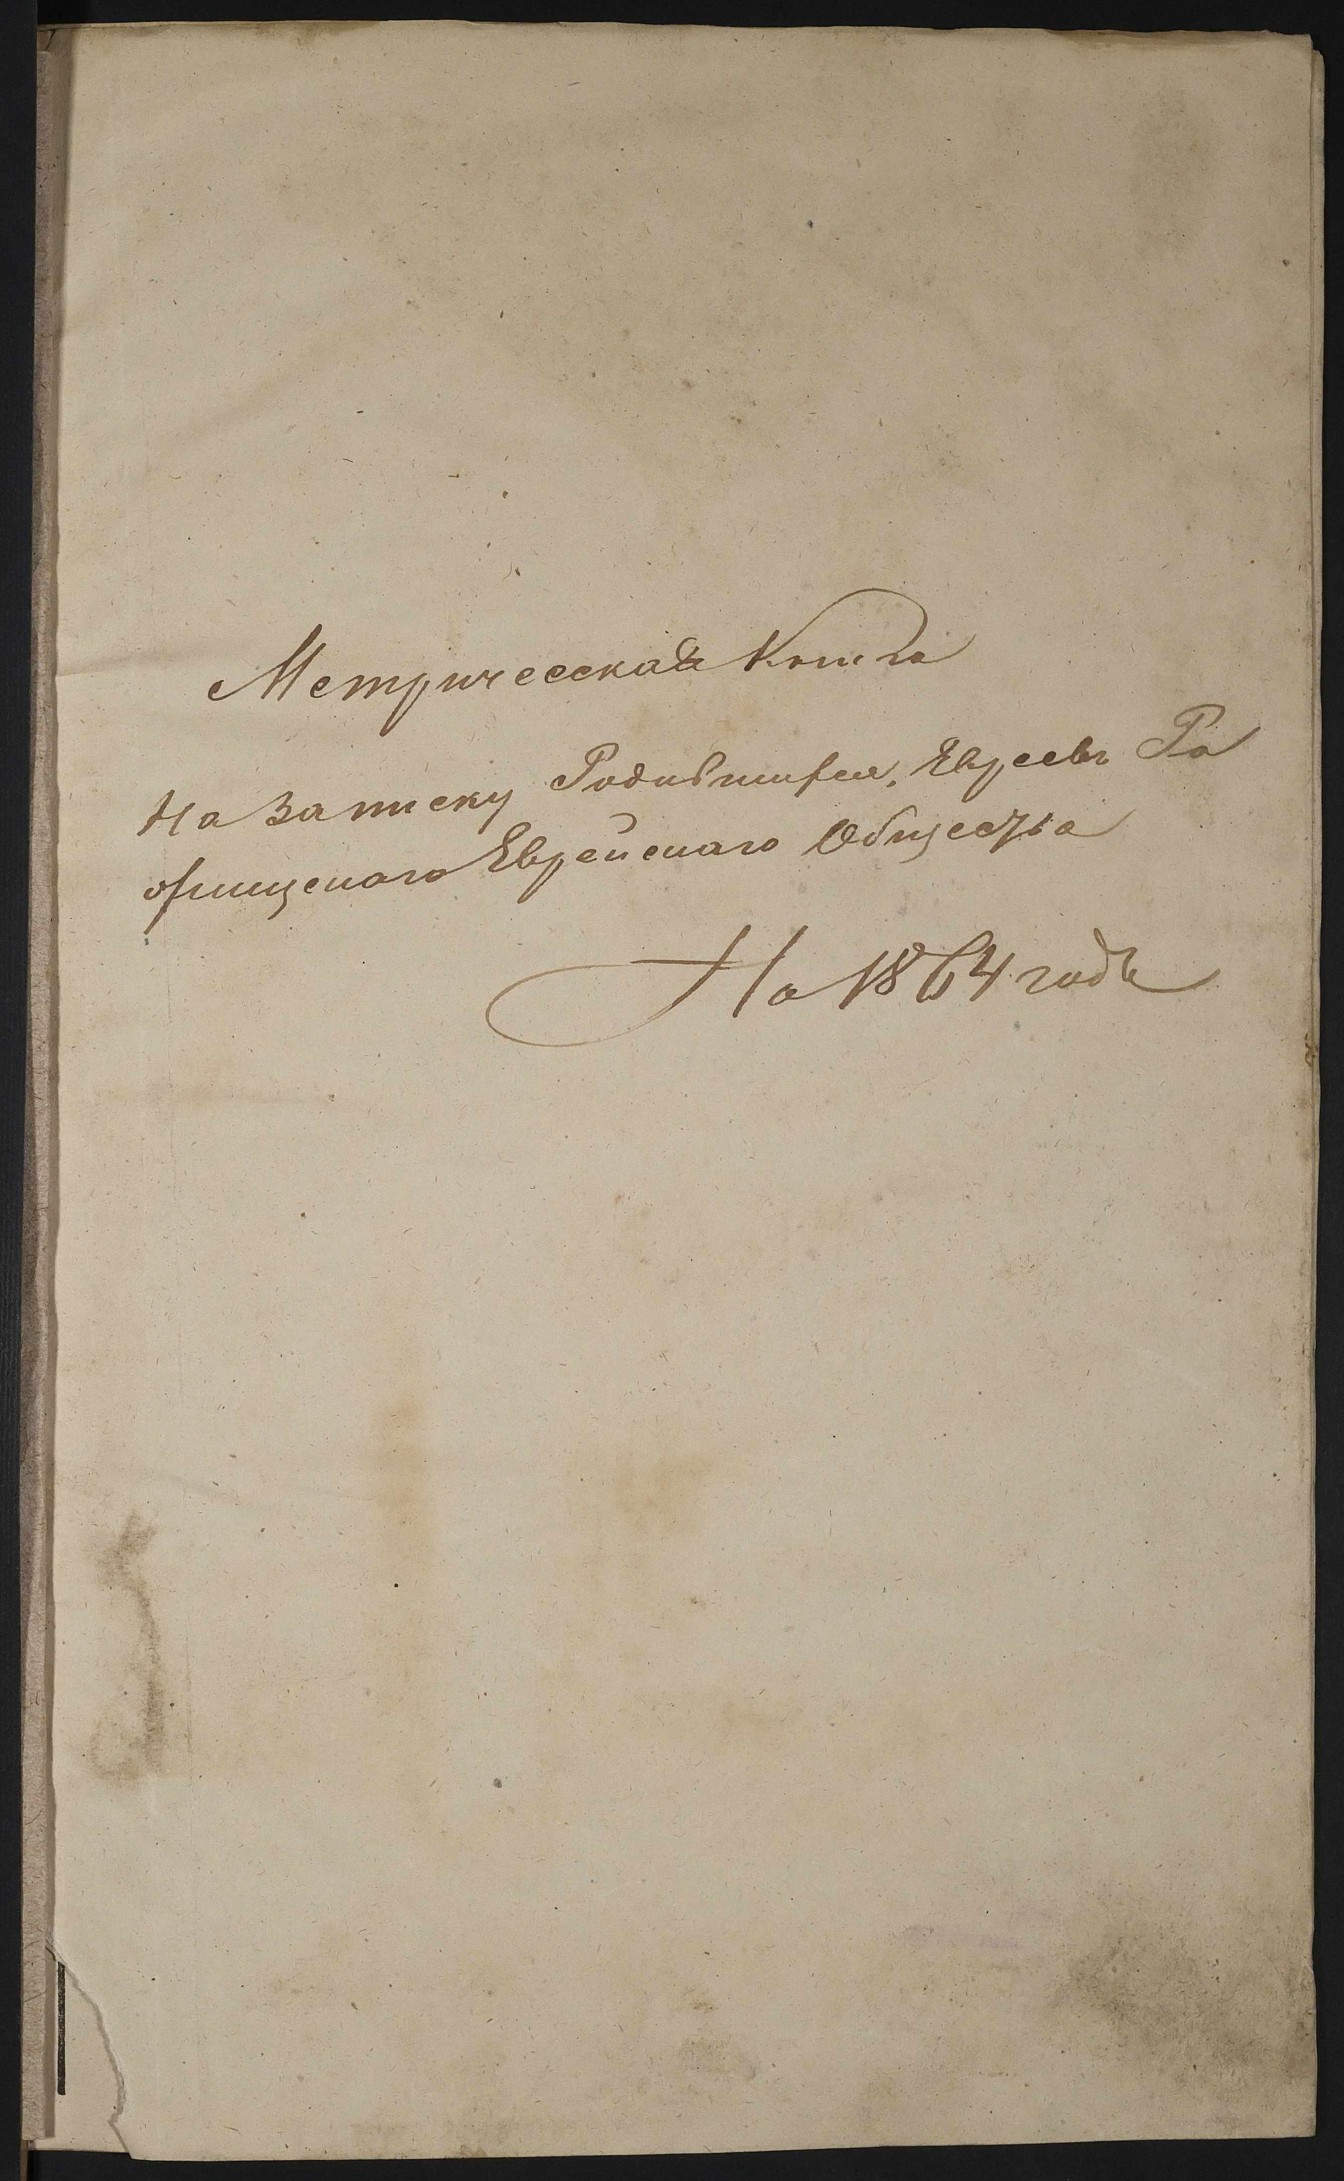 Метрическая Книга
На Записку Родившихся, Евреевъ Ра
хмищскаго Еврейскаго Общества
На 1864 годъ